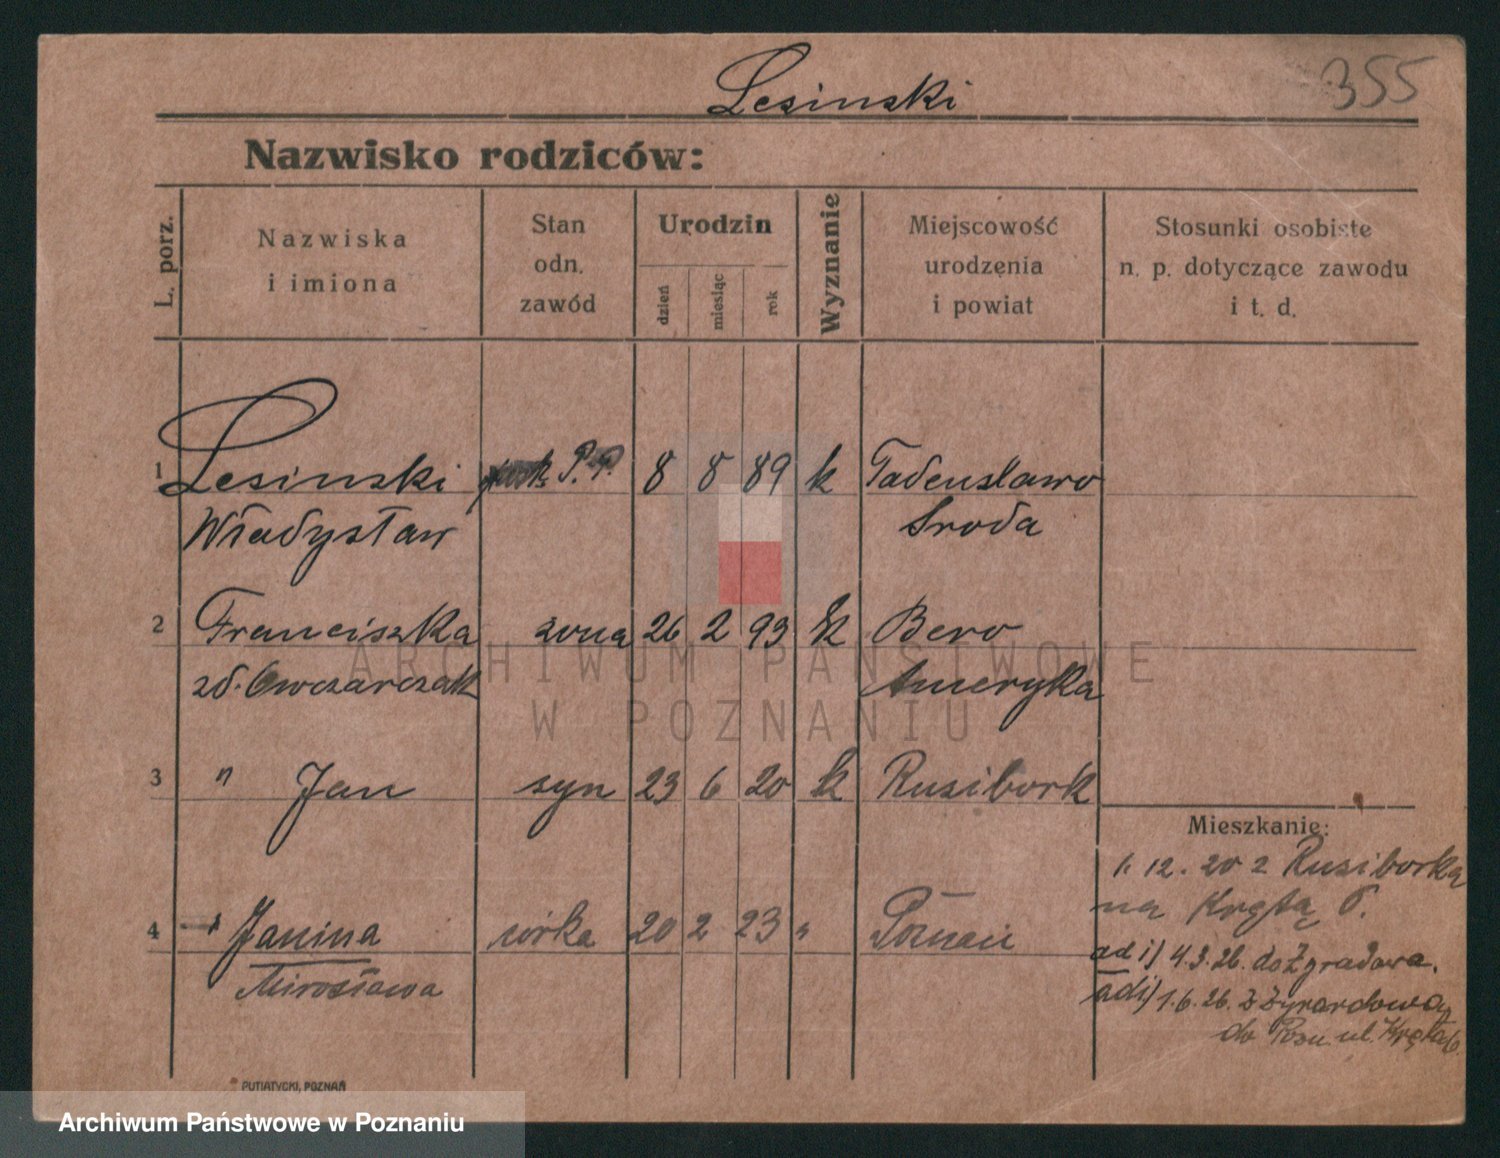 Lesinski
355
Nazwisko rodziców:
L. porz.
Nazwiska
i imiona
Stan
odn.
zawód
Urodzin
dzień
miesiąc
rok
Wyznanie
Miejscowość
urodzenia
i powiat
Stosunki osobiste
n. p. dotyczące zawodu
i t. d.
1 Lesinski P.P. 8 8 89 k Tadeusławo
Władysław Sroda
2 Franciszka zona 26 2 93 k Bero
zd. Owczarczak Ameryka
3 " Jan syn 23 6 20 k Rusibork
Mieszkanie:
1. 12. 20 z Rusiborka
na Krętą 6.
4 " Janina córka 20 2 23 " Poznań
Mirosława
ad 1) 4.3.26. do Zyradowa.
ad 1) 1.6.26. z Zyrardowa
do Pozn. ul. Kręta 6.
PUTIATYCKI, POZNAŃ
ARCHIWUM PAŃSTWOWE
W POZNANIU
Archiwum Państwowe w Poznaniu